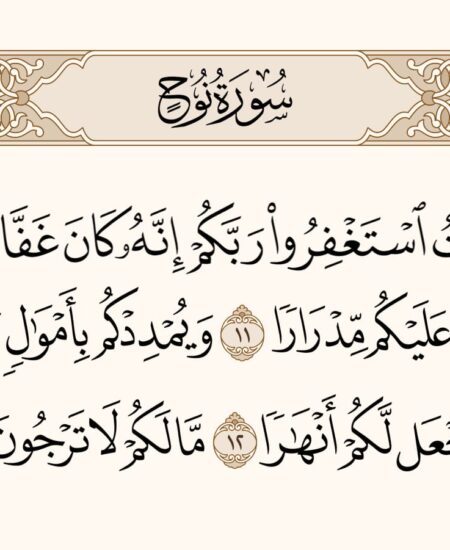 سُورَةُ نُوحٍ
ٱسۡتَغۡفِرُواْ رَبَّكُمۡ إِنَّهُۥ كَانَ غَفَّا
عَلَيۡكُم مِّدۡرَارٗا ١١ وَيُمۡدِدۡكُم بِأَمۡوَٰلٖ
جۡعَل لَّكُمۡ أَنۡهَٰرٗا ١٢ مَّا لَكُمۡ لَا تَرۡجُونَ